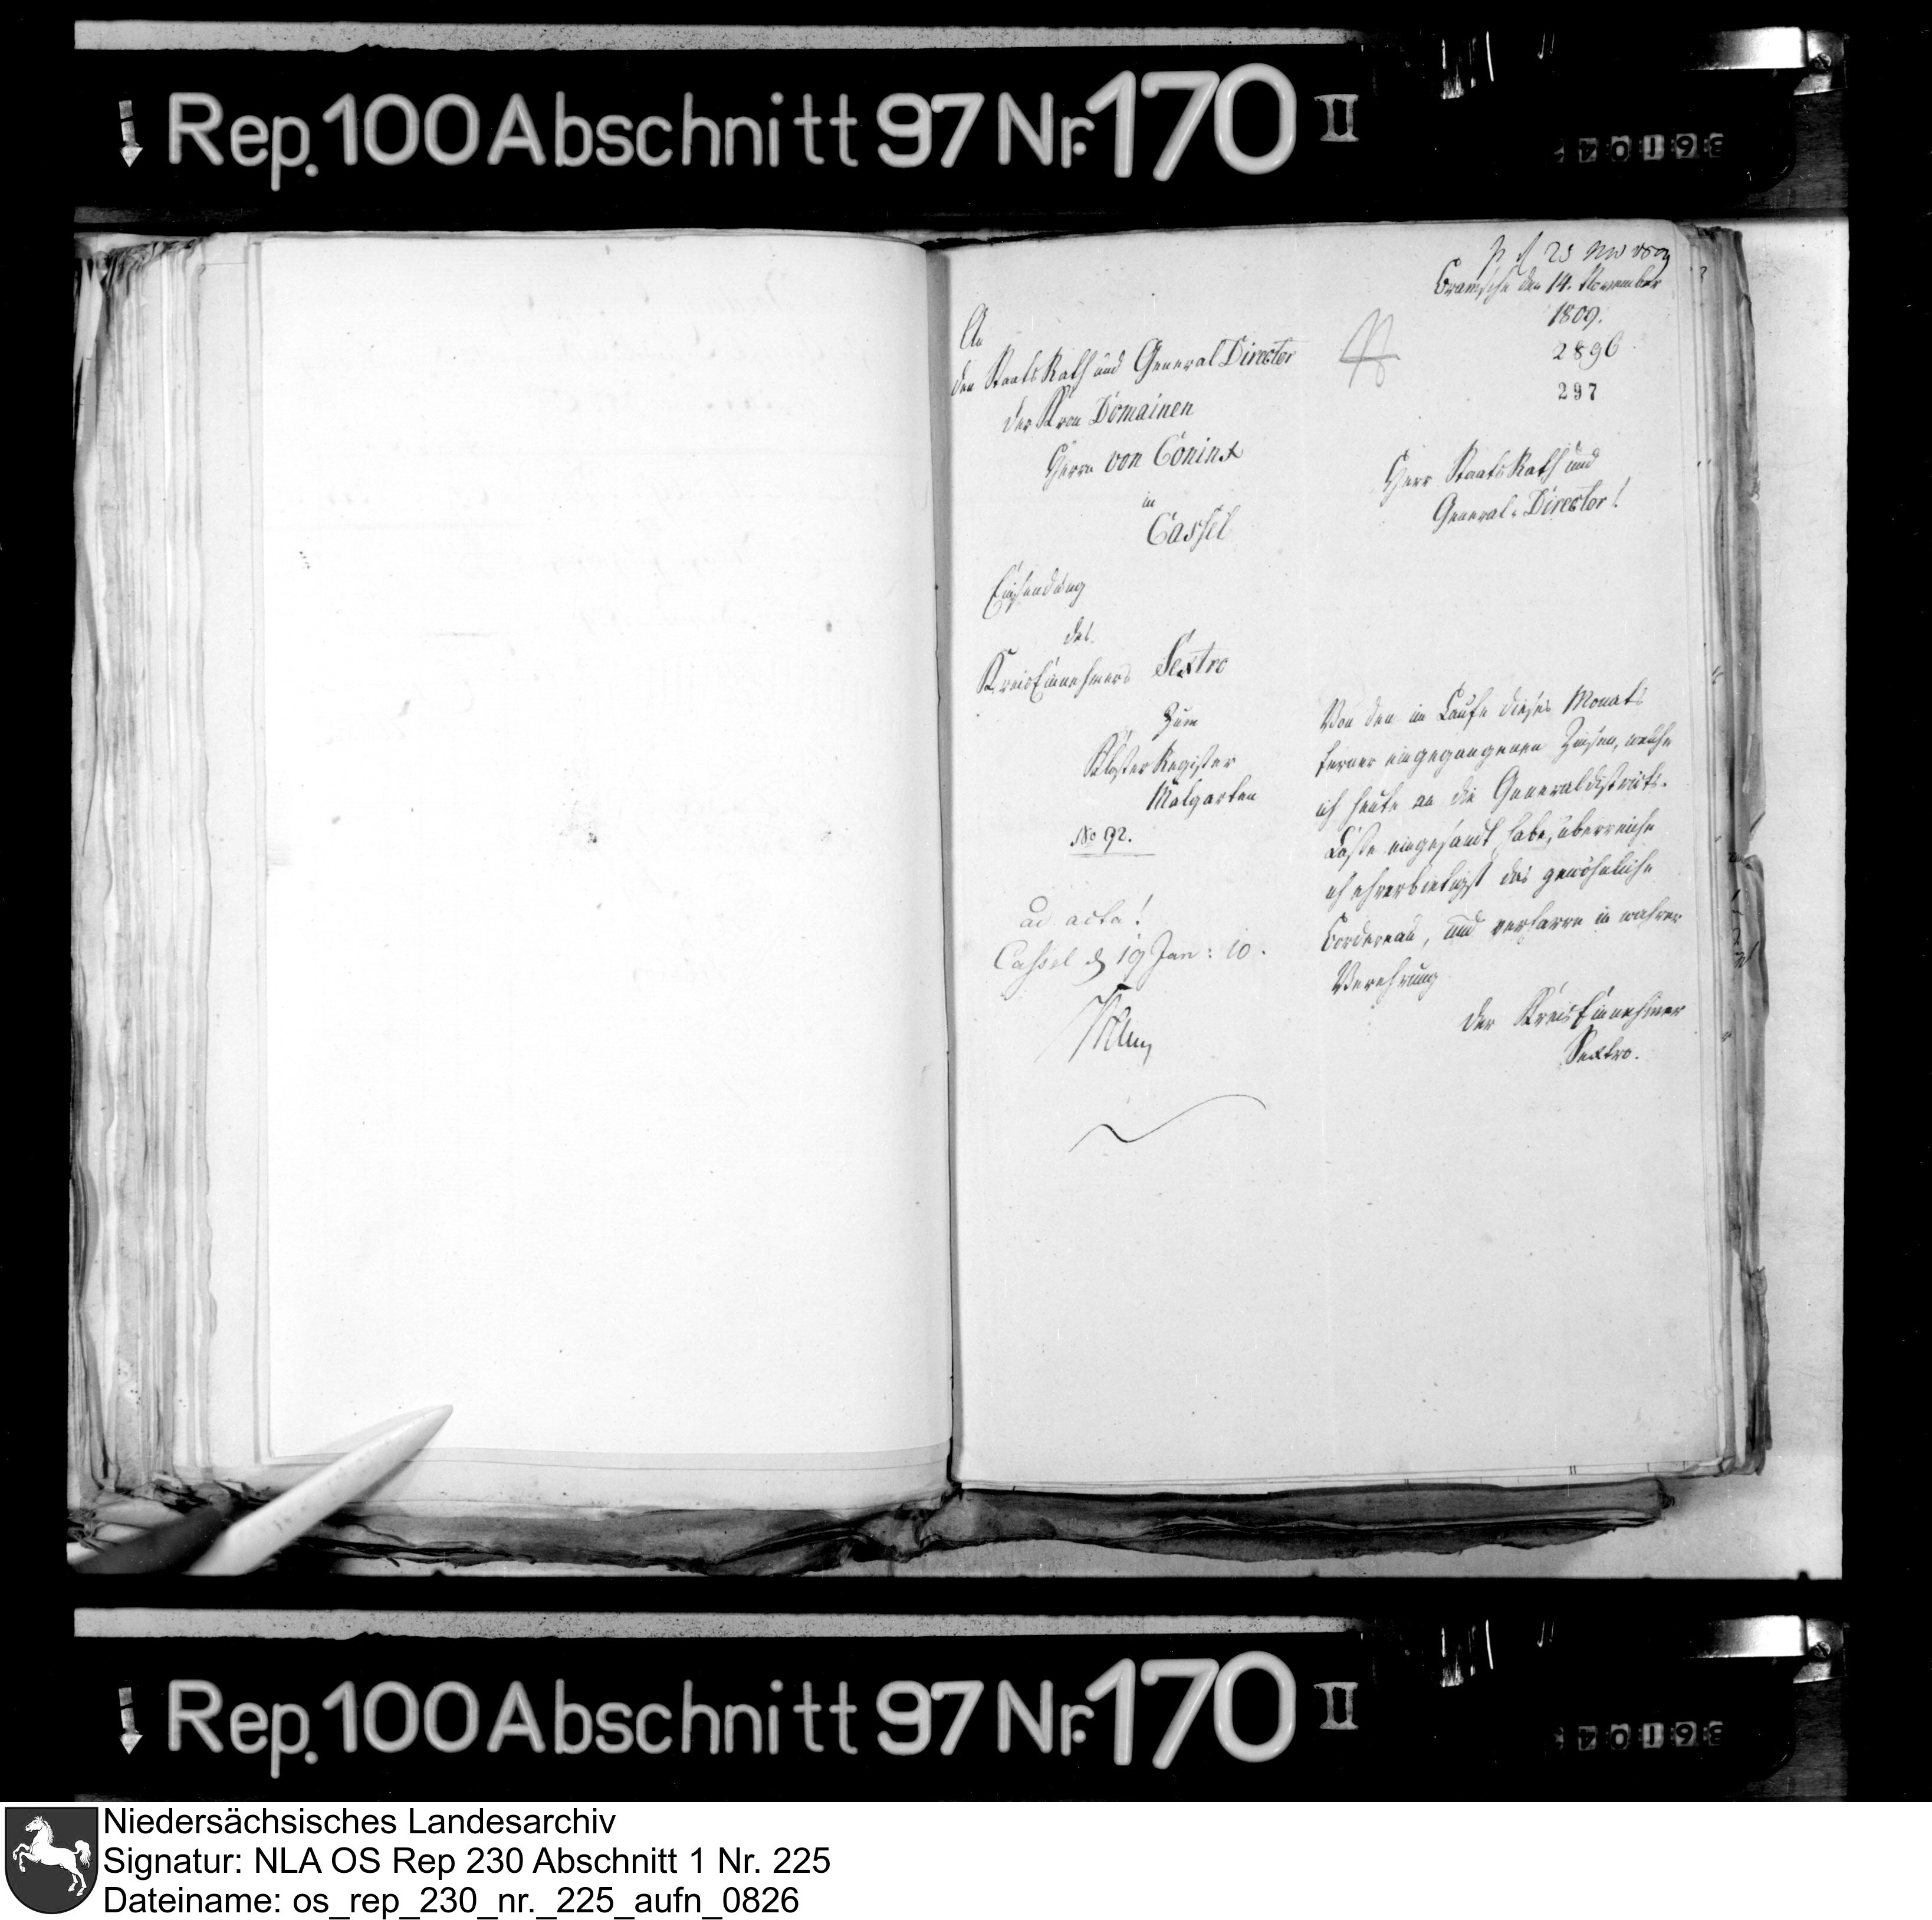 Rep. 100 Abschnitt 97 Nr. 170 II
Bramsche den 14. November
1809.
2896
297
An
den StaatsRath und General Director
der Kron Domainen
Herrn von Coninx
in
Cassel
Herr StaatsRath und
General-Director!
Einsendung
des
KreisEinnehmers Sextro
zum
KlosterRegister
Malgarten
No 92.
ad acta!
Cassel d 19 Jan: 10.
Von den im Laufe dieses Monats
ferner eingegangenen Zinsen, welche
ich heute an die Generaldistricts-
Casse eingesandt habe, überreiche
ich ehrerbietigst das gewöhnliche
Bordereau, und verharre in wahrer
Verehrung
der KreisEinnehmer
Sextro.
Rep. 100 Abschnitt 97 Nr. 170 II
Niedersächsisches Landesarchiv
Signatur: NLA OS Rep 230 Abschnitt 1 Nr. 225
Dateiname: os_rep_230_nr._225_aufn_0826